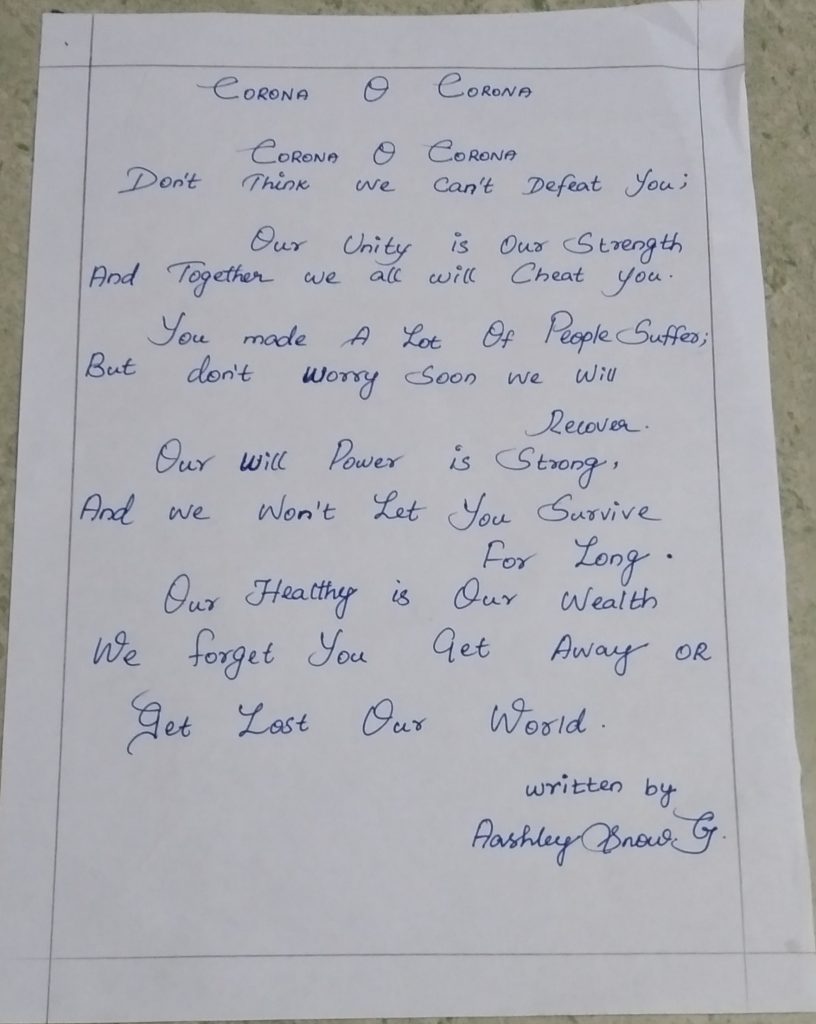 CORONA O CORONA
CORONA O CORONA
Don't Think we Can't Defeat You;
Our Unity is Our Strength
And Together we all will Cheat you.
You made A Lot Of People Suffer;
But don't worry Soon we Will
Recover.
Our will Power is Strong,
And we Won't Let You Survive
For Long.
Our Healthy is Our Wealth
We forget You Get Away OR
Get Lost Our World.
written by
Aashley Snow. G.